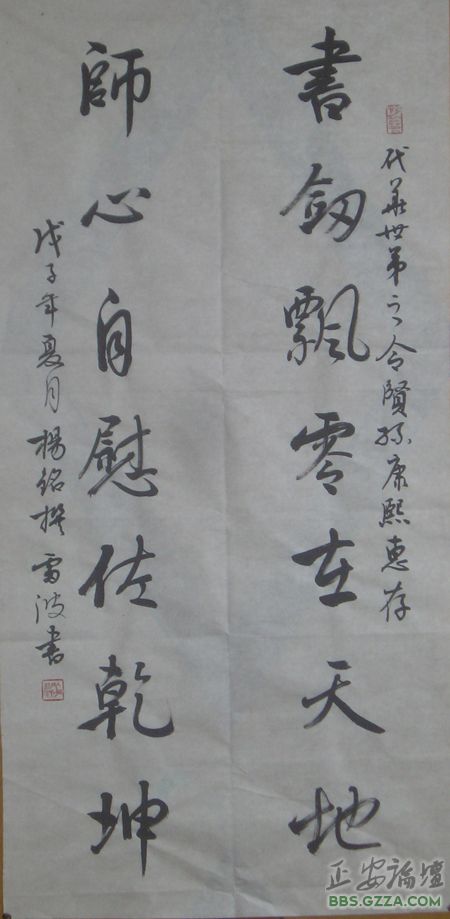 代華世第之令賢孫康熙惠存
書劍飄零在天地
師心自慰佐乾坤
戊子年夏月楊銘撰雷波書
正安論壇
BBS.GZZA.COM